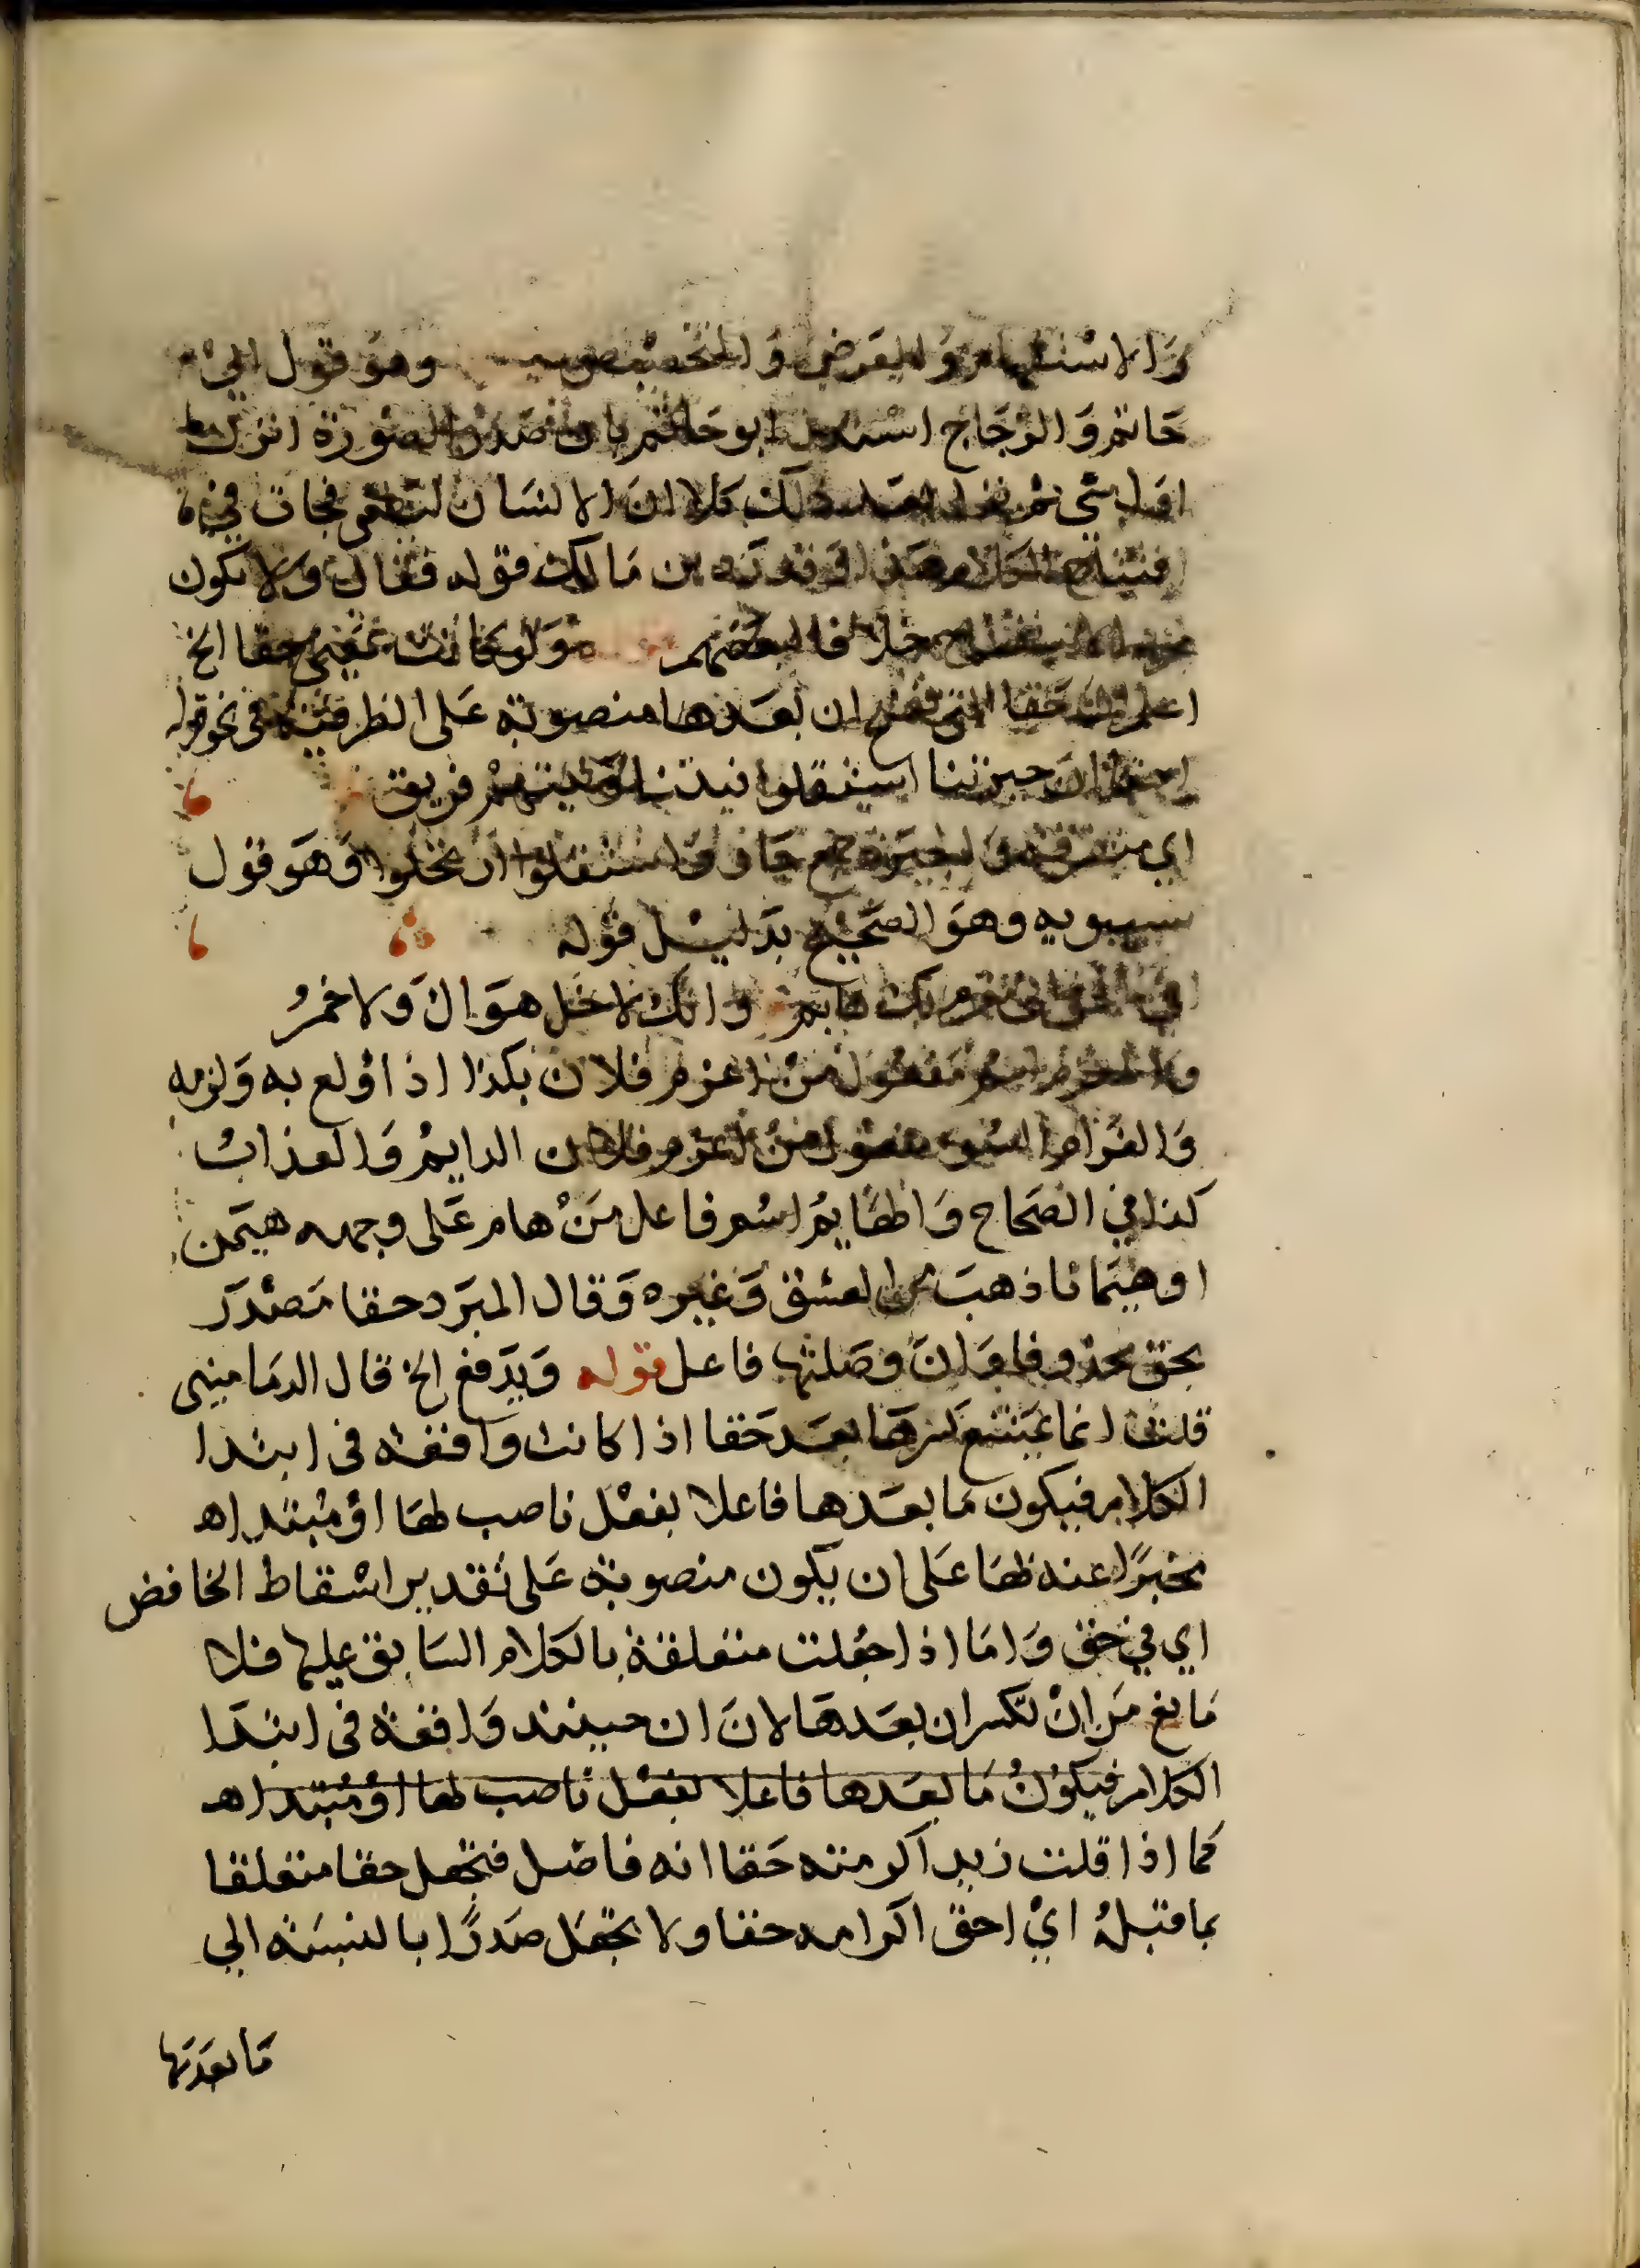 والاستفهام والعرض والتحضيض وهو قول ابي
حاتم والزجاج استدل ابو حاتم بان صدر السورة انزلت
اول شي ثم نزل بعد ذلك كلا ان الانسان ليطغى فجات في
افتتاح الكلام وقد رد بن مالك قوله فقال ولا يكون
خلافا لبعضهم قوله ولو كانت بمعنى حقا الخ
اعلم ان حقا التي تفتح ان بعدها منصوبة على الظرفية في نحو قوله
احقا ان جيرتنا استقلوا فنيتنا ونيتهم فريق
اي متفرقة والجيرة جمع جار واستقلوا ارتحلوا وهو قول
سيبويه وهو الصحيح بدليل قوله
افي الحق اني مغرم بك هايم وانك لا خل هواك ولا خمرُ
والمغرم اسم مفعول من اغرم فلان بكذا اذا اولع به ولزمه
والغرام فلان الدايم والعذاب
كذا في الصحاح والهايم اسم فاعل من هام على وجهه هيمن
او هيمانا ذهب من العشق وغيره وقال المبرد حقا مصدر
بحق محذوفا وان وصلتها فاعل قوله ويدفع الخ قال الدماميني
قلت انما يمتنع كسرها بعد حقا اذا كانت واقفة في ابتدا
الكلام فيكون ما بعدها فاعلا بفعل ناصب لها او مبتدا اهـ
مخبرا عنه لها على ان يكون منصوبة على تقدير اسقاط الخافض
اي في حق واما اذا جعلت متعلقة بالكلام السابق عليها فلا
مانع من ان تكسر ان بعدها لان ان حينئذ واقفة في ابتدا
الكلام فيكون ما بعدها فاعلا بفعل ناصب لها او مبتدا اهـ
كما اذا قلت زيد اكرمته حقا انه فاضل فتجعل حقا متعلقا
بما قبله اي احق اكرامه حقا ولا تجعل صدرا بالنسبة الي
ما بعدها